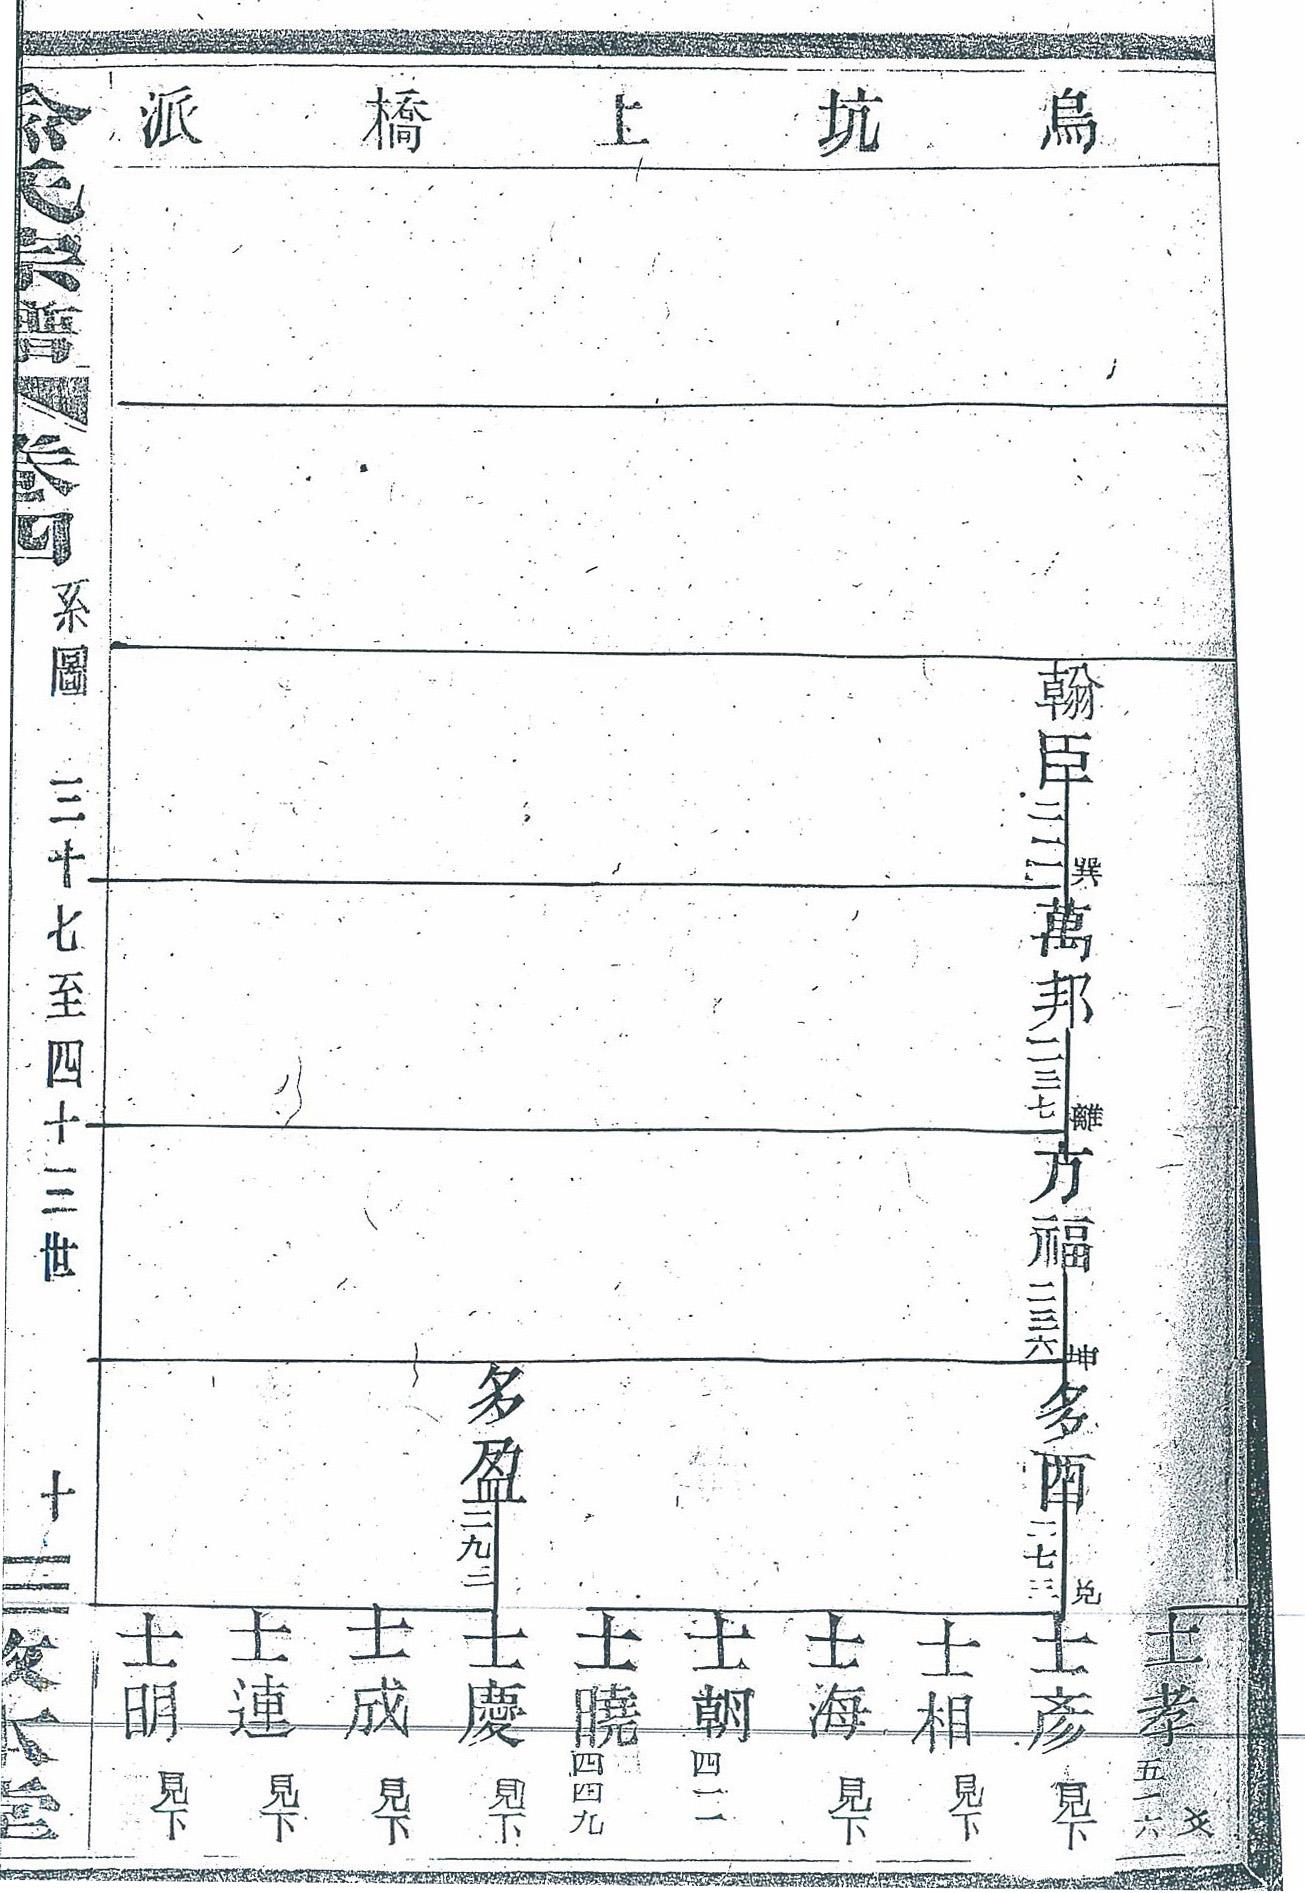 烏坑上橋派
翰臣
二一一
巽
萬邦
二三七
離
方福
二三六
坤
多酉
二七三
兌
多盈
二九二
士孝
五一六
士彥
見下
士相
見下
士海
見下
士朝
四一一
士曉
四四九
士慶
見下
士成
見下
士連
見下
士明
見下
氏宗譜
卷四
系圖
三十七至四十三世
十